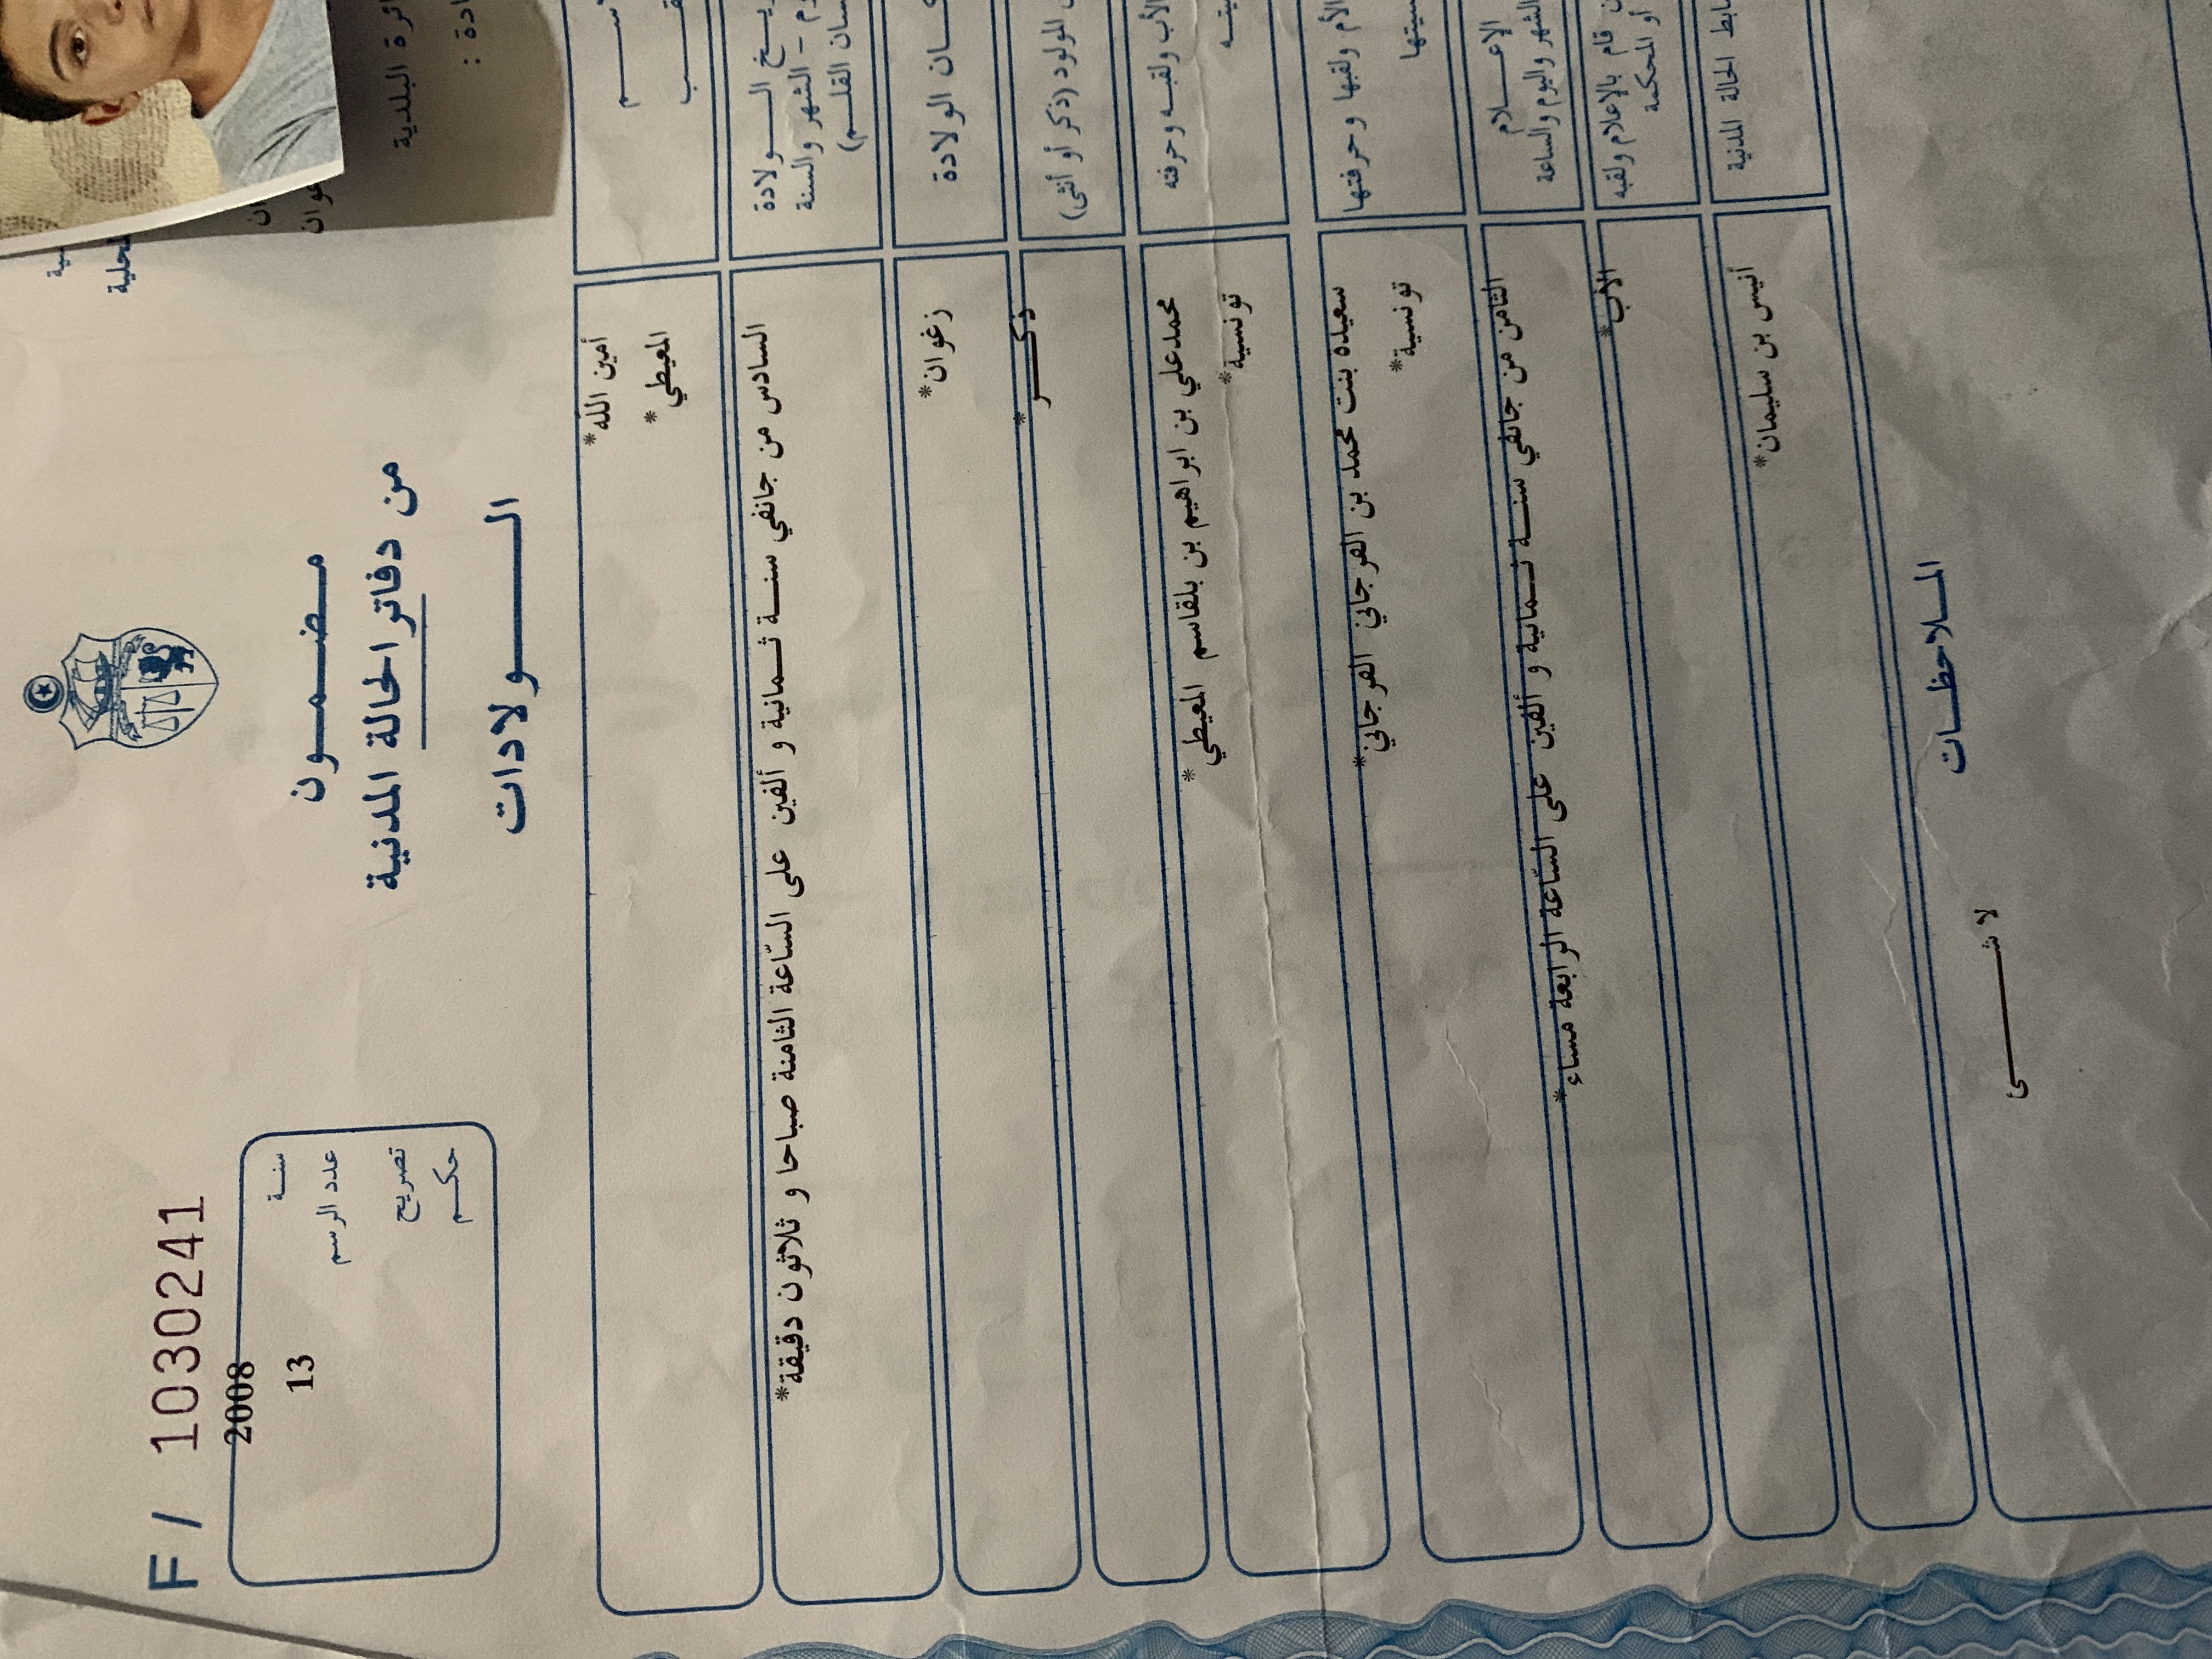 F / 1030241
سنة 2008
عدد الرسم 13
تصريح
حكم
مضمون
من دفاتر الحالة المدنية
الولادات
أمين الله*
المعيطي*
السادس من جانفي سنة ثمانية و ألفين على الساعة الثامنة صباحا و ثلاثون دقيقة*
الولادة
زغوان*
المولود (ذكر أو أنثى)
ذكر*
الأب ولقبه وحرفته
محمدعلي بن ابراهيم بن بلقاسم المعيطي*
تونسية*
الأم ولقبها وحرفتها
سعيده بنت محمد بن الفرجاني الفرجاني*
تونسية*
الإعلام
الشهر واليوم والساعة
الثامن من جانفي سنة ثمانية و ألفين على الساعة الرابعة مساء*
قام بالإعلام ولقبه
أو المحكمة
الأب*
الحالة المدنية
أنيس بن سليمان*
الملاحظات
لا شى